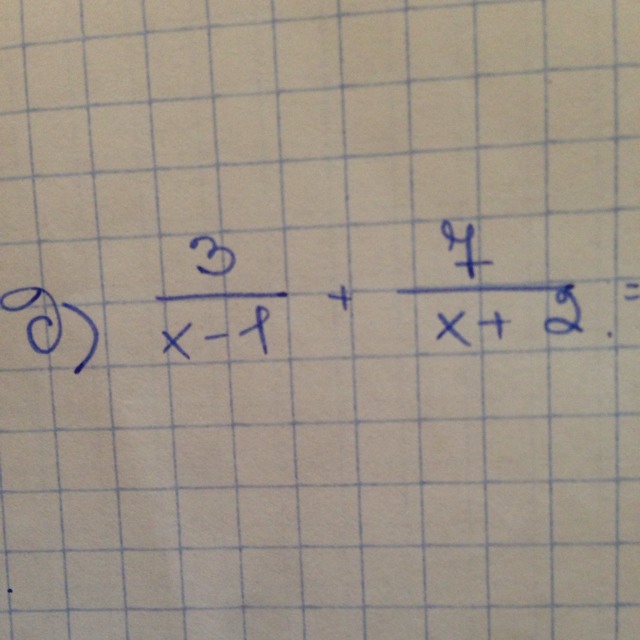 д) 3/(x-1) + 7/(x+2) =